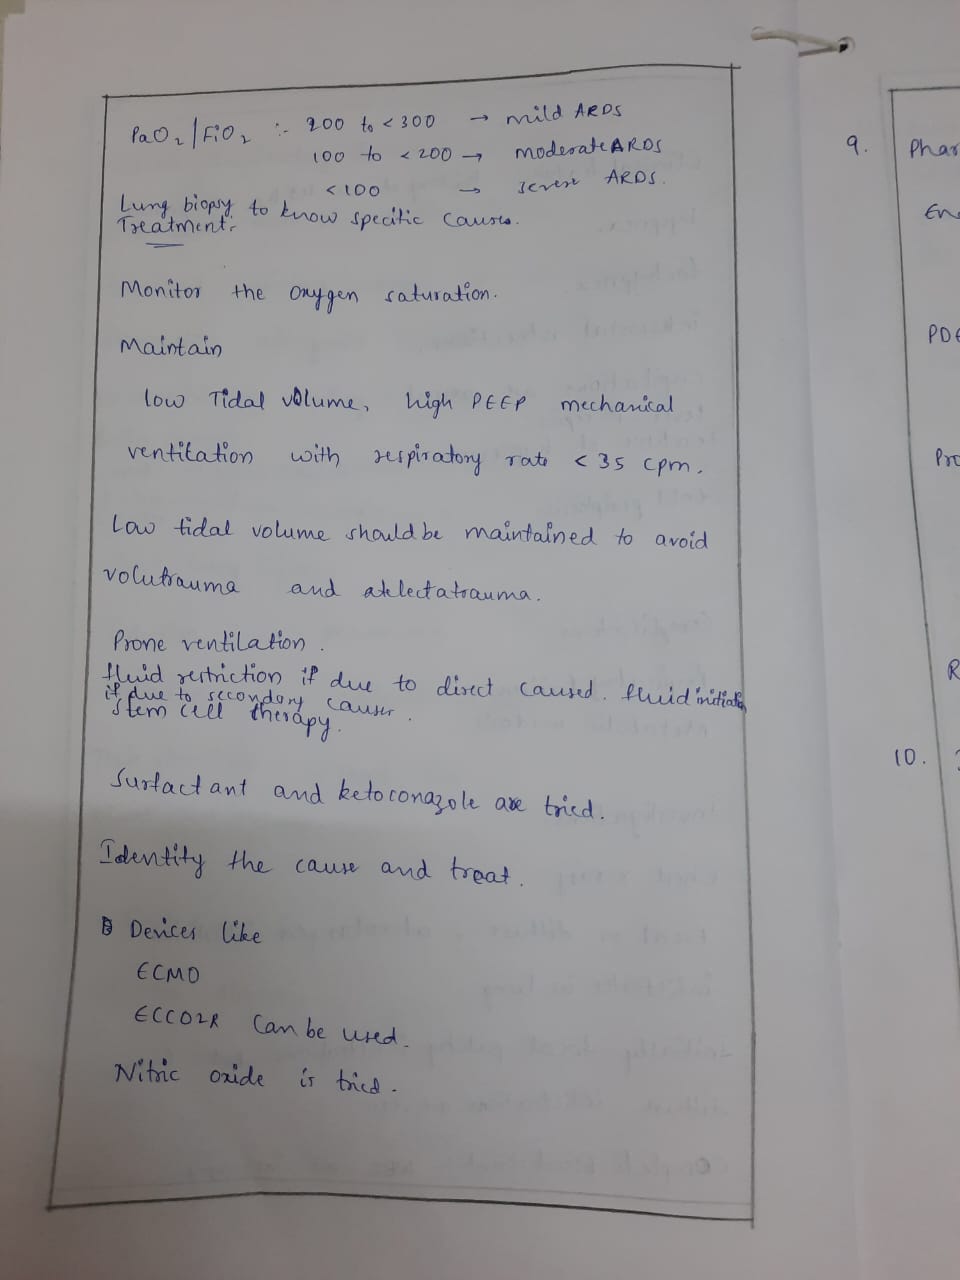 PaO2/FiO2 :- 200 to < 300 → mild ARDS
100 to < 200 → moderate ARDS
< 100 → severe ARDS.
Lung biopsy to know specific causes.
Treatment:
Monitor the oxygen saturation.
Maintain
low Tidal volume, high PEEP mechanical
ventilation with respiratory rate < 35 cpm.
Low tidal volume should be maintained to avoid
volutrauma and atelectatrauma.
Prone ventilation.
fluid restriction if due to direct caused. fluid initiation
if due to secondary causes.
stem cell therapy.
Surfactant and ketoconazole are tried.
Identity the cause and treat.
Devices like
ECMO
ECCO2R can be used.
Nitric oxide is tried.
9. Phar
En
PDE
Pro
R
10.